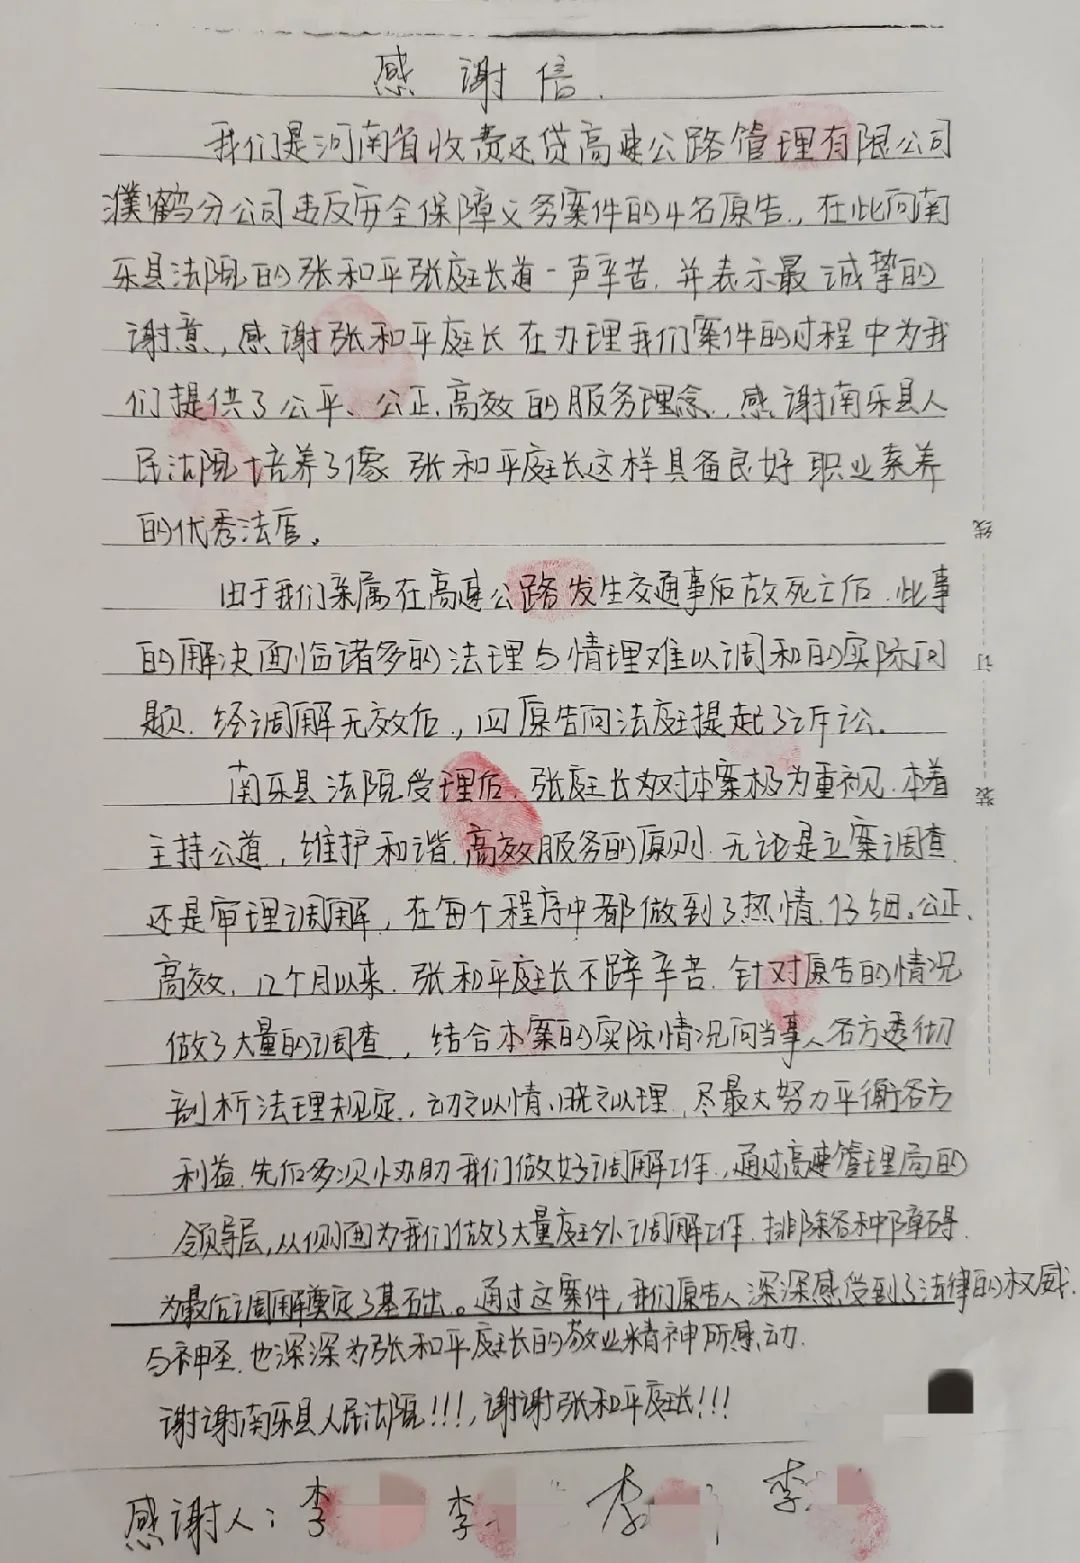 感谢信
我们是河南省收费还贷高速公路管理有限公司
濮鹤分公司违反安全保障义务案件的4名原告,在此向南
乐县法院的张和平张庭长道一声辛苦,并表示最诚挚的
谢意,感谢张和平庭长在办理我们案件的过程中为我
们提供了公平、公正、高效的服务理念,感谢南乐县人
民法院培养了像张和平庭长这样具备良好职业素养
的优秀法官。
由于我们亲属在高速公路发生交通事后故死亡后,此事
的解决面临诸多的法理与情理难以调和的实际问
题,经调解无效后,四原告向法庭提起了诉讼。
南乐县法院受理后,张庭长对本案极为重视,本着
主持公道,维护和谐,高效服务的原则,无论是立案调查
还是审理调解,在每个程序中都做到了热情、仔细。公正、
高效,12个月以来,张和平庭长不辞辛苦,针对原告的情况
做了大量的调查,结合本案的实际情况向当事人各方透彻
剖析法理规定,动之以情、晓之以理,尽最大努力平衡各方
利益,先后多次协助我们做好调解工作,通过高速管理局的
领导层,从侧面为我们做了大量庭外调解工作,排除各种障碍,
为最后调解奠定了基础出。通过这案件,我们原告人深深感受到了法律的权威
与神圣,也深深为张和平庭长的敬业精神所感动.
谢谢南乐县人民法院!!!,谢谢张和平庭长!!!
感谢人:李 李 李 李
线
订
装